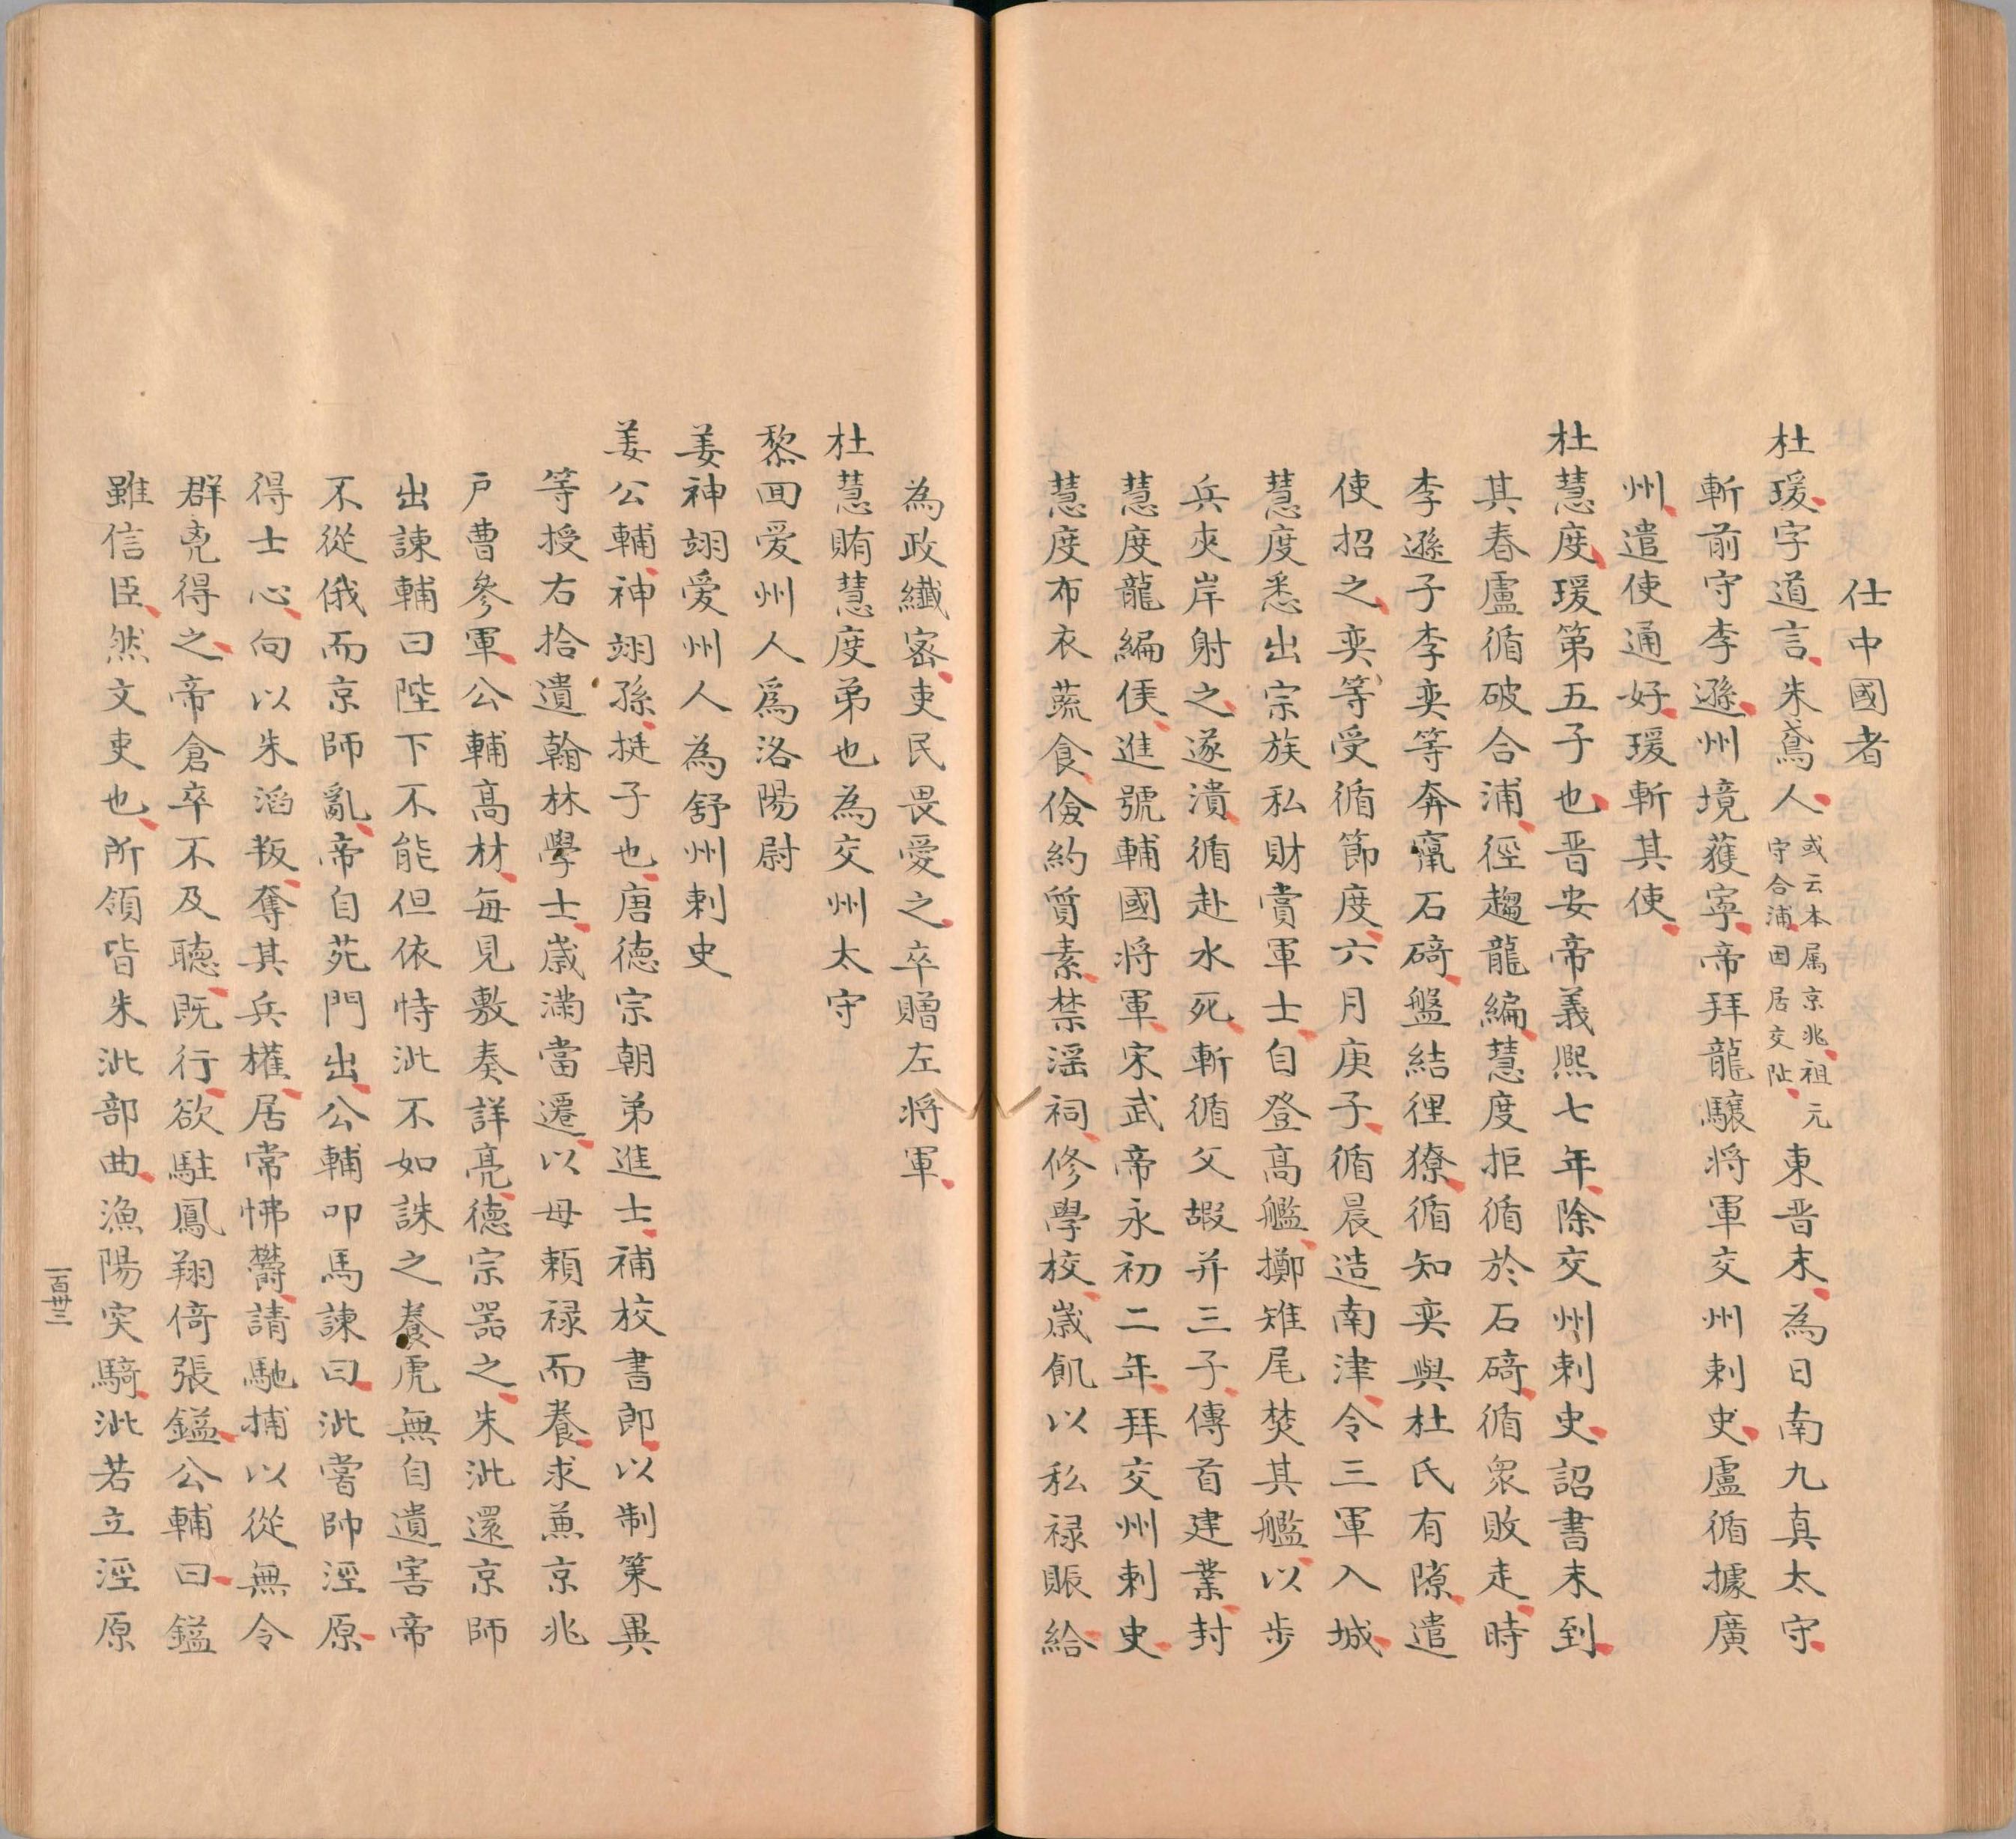 仕中國者
杜瑗字道言朱鳶人或云本属京兆祖元守合浦因居交阯東晋末為日南九真太守
斬前守李遜州境獲寧帝拜龍驤将軍交州刺史盧循據廣
州遣使通好瑗斬其使
杜慧度瑗第五子也晋安帝義熙七年除交州刺史詔書未到
其春盧循破合浦徑趨龍編慧度拒循於石碕循衆敗走時
李遜子李奕等奔竄石碕盤結俚獠循知奕與杜氏有隙遣
使招之奕等受循節度六月庚子循晨造南津令三軍入城
慧度悉出宗族私財賞軍士自登高艦擲雉尾焚其艦以步
兵夾岸射之遂潰循赴水死斬循父嘏并三子傳首建業封
慧度龍編侯進號輔國将軍宋武帝永初二年拜交州刺史
慧度布衣蔬食儉約質素禁淫祠修學校歳飢以私禄賑給
為政纖密吏民畏愛之卒贈左将軍
杜慧睛慧度弟也為交州太守
黎回爱州人爲洛陽尉
姜神翊爱州人為舒州刺史
姜公輔神翊孫挺子也唐德宗朝弟進士補校書郎以制策異
等授右拾遺翰林學士歳滿當遷以母頼禄而養求兼京兆
戸曹參軍公輔髙材每見敷奏詳亮德宗器之朱泚還京師
出諫輔曰陛下不能但依恃泚不如誅之養虎無自遺害帝
不從俄而京師亂帝自苑門出公輔叩馬諫曰泚嘗帥涇原
得士心向以朱滔叛奪其兵權居常怫欝請馳捕以從無令
群兇得之帝倉卒不及聴既行欲駐鳳翔倚張鎰公輔曰鎰
雖信臣然文吏也所領皆朱泚部曲漁陽突騎泚若立涇原
一百卅三